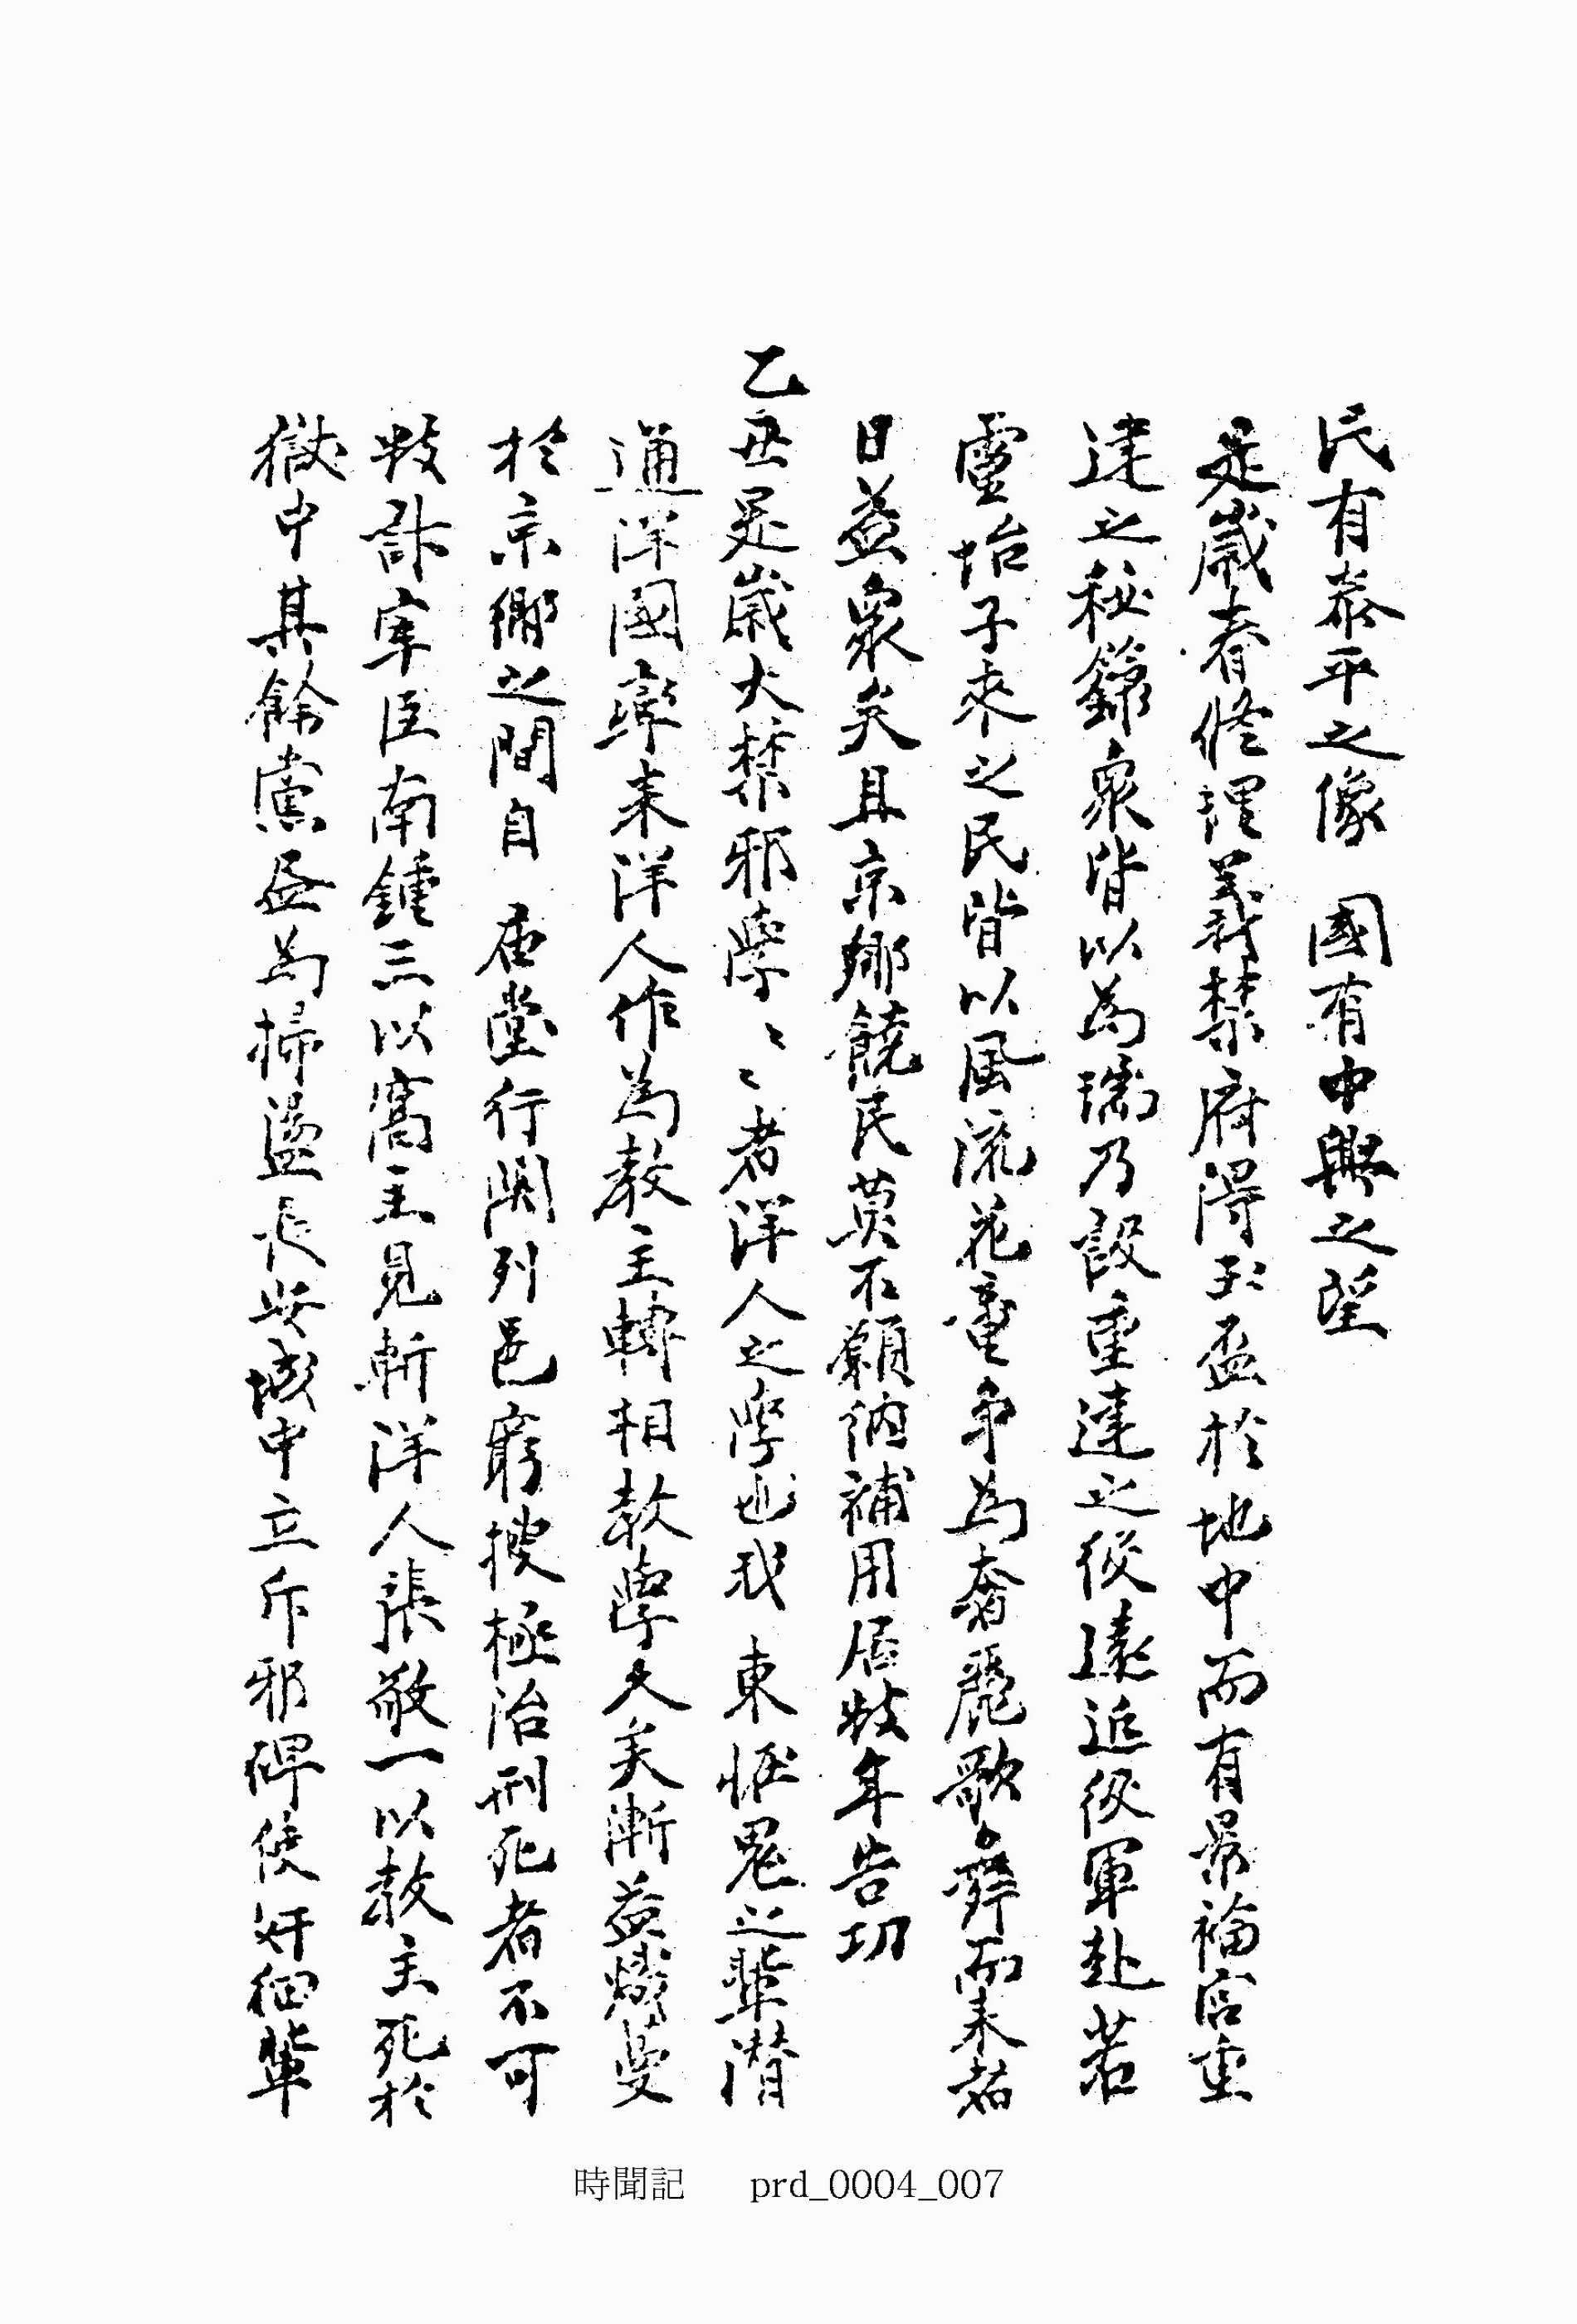 民有泰平之像 國有中興之望
是歲春修理義禁府得玉盃於地中而有景福宮重
建之秘錄衆皆以爲瑞乃設重建之役遠近役軍赴若
靈坮子來之民皆以風流花童爭爲奢麗歌舞而來者
日益衆矣且京鄕饒民莫不願納補用居數年告功
乙丑是歲大禁邪學〻〻者洋人之學也我 東怪鬼之輩潛
通洋國率來洋人作爲敎主轉相敎學久矣漸益熾蔓
於京鄕之間自 廟堂行關列邑窮搜極治刑死者不可
數計宰臣南鍾三以窩主見斬洋人張敬一以敎主死於
獄中其餘黨盡爲掃盪長安城中立斥邪碑使奸細輩
時聞記 prd_0004_007